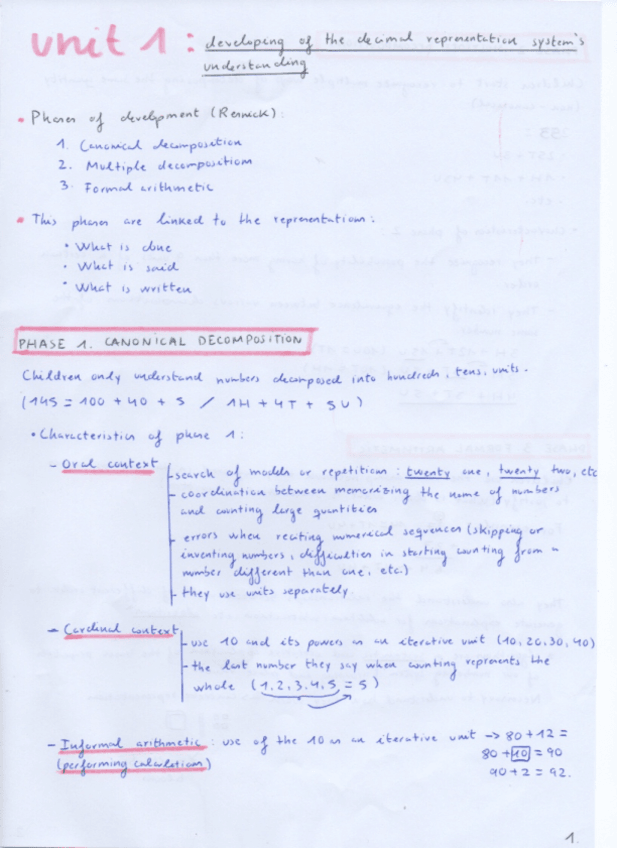 unit 1: developing of the decimal representation system's
understanding
• Phases of development (Resnick):
1. Canonical decomposition
2. Multiple decompositions
3. Formal arithmetic
• This phases are linked to the representations:
• What is done
• What is said
• What is written
PHASE 1. CANONICAL DECOMPOSITION
Children only understand numbers decomposed into hundreds, tens, units.
(145 = 100 + 40 + 5 / 1H + 4T + 5U)
• Characteristics of phase 1:
- Oral context
- search of models or repetitions: twenty one, twenty two, etc
- coordination between memorizing the name of numbers
and counting large quantities
- errors when reciting numerical sequences (skipping or
inventing numbers, difficulties in starting counting from a
number different than one, etc.)
- they use units separately
- Cardinal context
- use 10 and its powers as an iterative unit (10, 20, 30, 40)
- the last number they say when counting represents the
whole (1, 2, 3, 4, 5 = 5)
- Informal arithmetic: use of the 10 as an iterative unit → 80 + 12 =
(performing calculations) 80 + 10 = 90
90 + 2 = 92.
1.